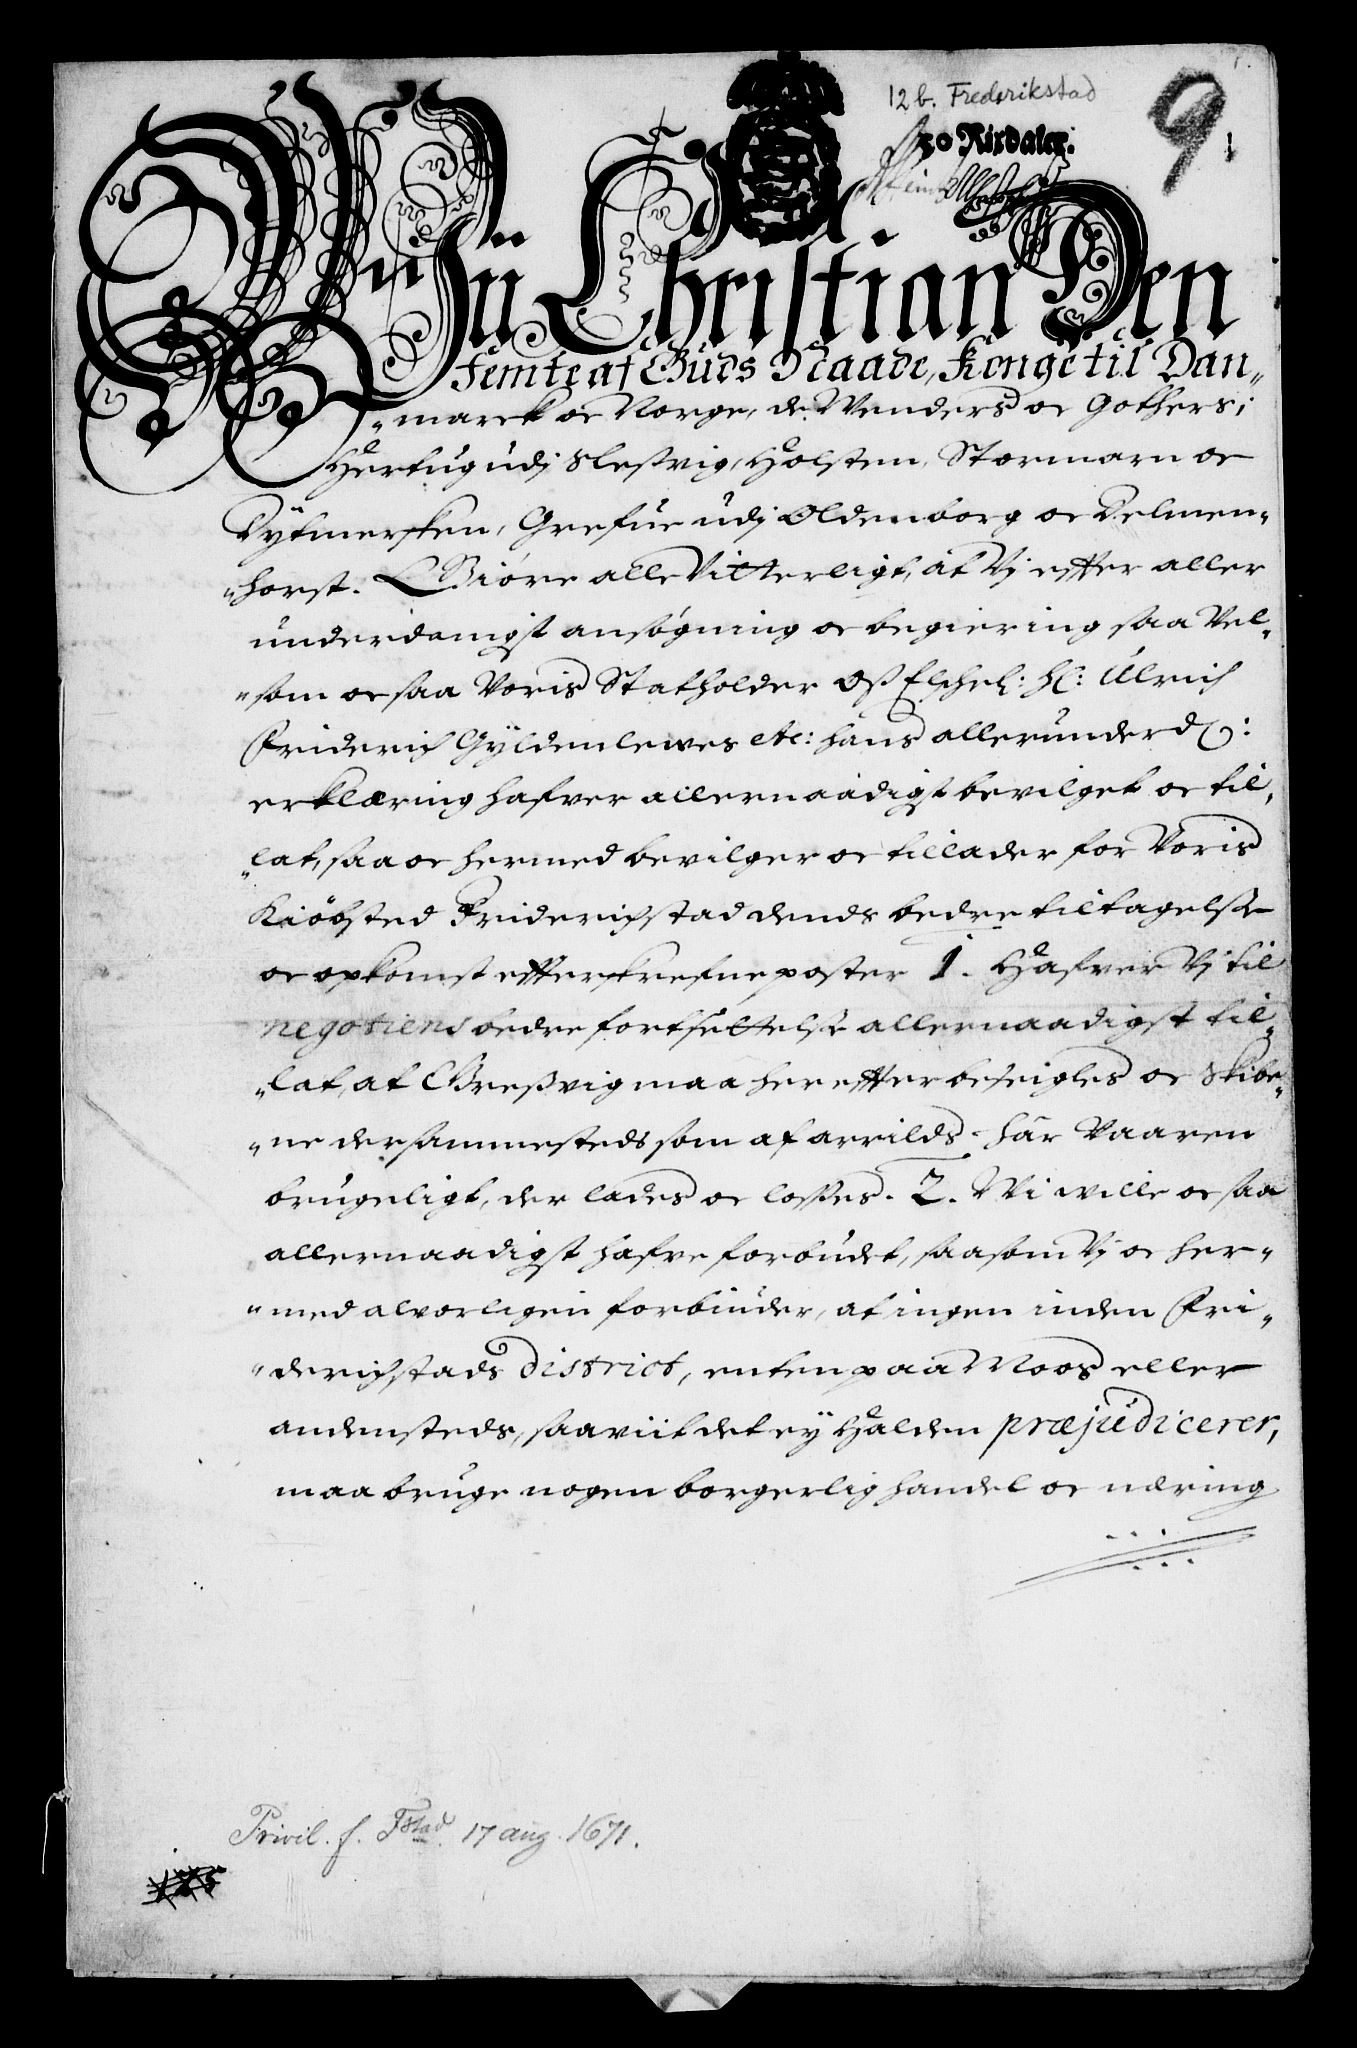 12 b. Fredrikstad
9
1
50 Rixdaler.
Wii Christian Den
Femte af Guds Naade, Konge til Dan-
-marck oc Norge, de Wenders oc Gothers,
Hertug udj Slesvig, Holsten, Stormarn oc
Dytmersken, Grefue udj Oldenborg oc Delmen-
-horst. Giöre alle Vitterligt, at Vj efter aller
underdanigst ansøgning oc begiering saa Vel-
-som oc saa Voris Statholder Oss Elschel: Hr: Ulrich
Friderich Gyldenlewes etc: hans allerunderd:
erklæring hafver allernaadigst bevilget oc til,
-lat, saa oc hermed bevilger oc tillader for Voris
Kiöbsted Friderichstad dends bedre tiltagelse
oc opkomst efterskrefne poster 1. Hafver Vj til
negotiens bedre fortsettelse allernaadigst til-
-lat, at Gressvig maa her efter beseigles oc Skibe-
-ne dersammesteds som af arrilds har Vaaren
brugeligt, der lades oc losses. 2. Wi wille oc saa
allernaadigst hafve forbudet, saasom Vj oc her-
-med alvorligen forbiuder, at ingen inden Fri-
-derichstads District, enten paa Moos eller
andensteds, saaviit det ey Halden præjudicerer,
maa bruge nogen borgerlig handel oc næring
Privil. f. Fstad. 17 aug. 1671.
125